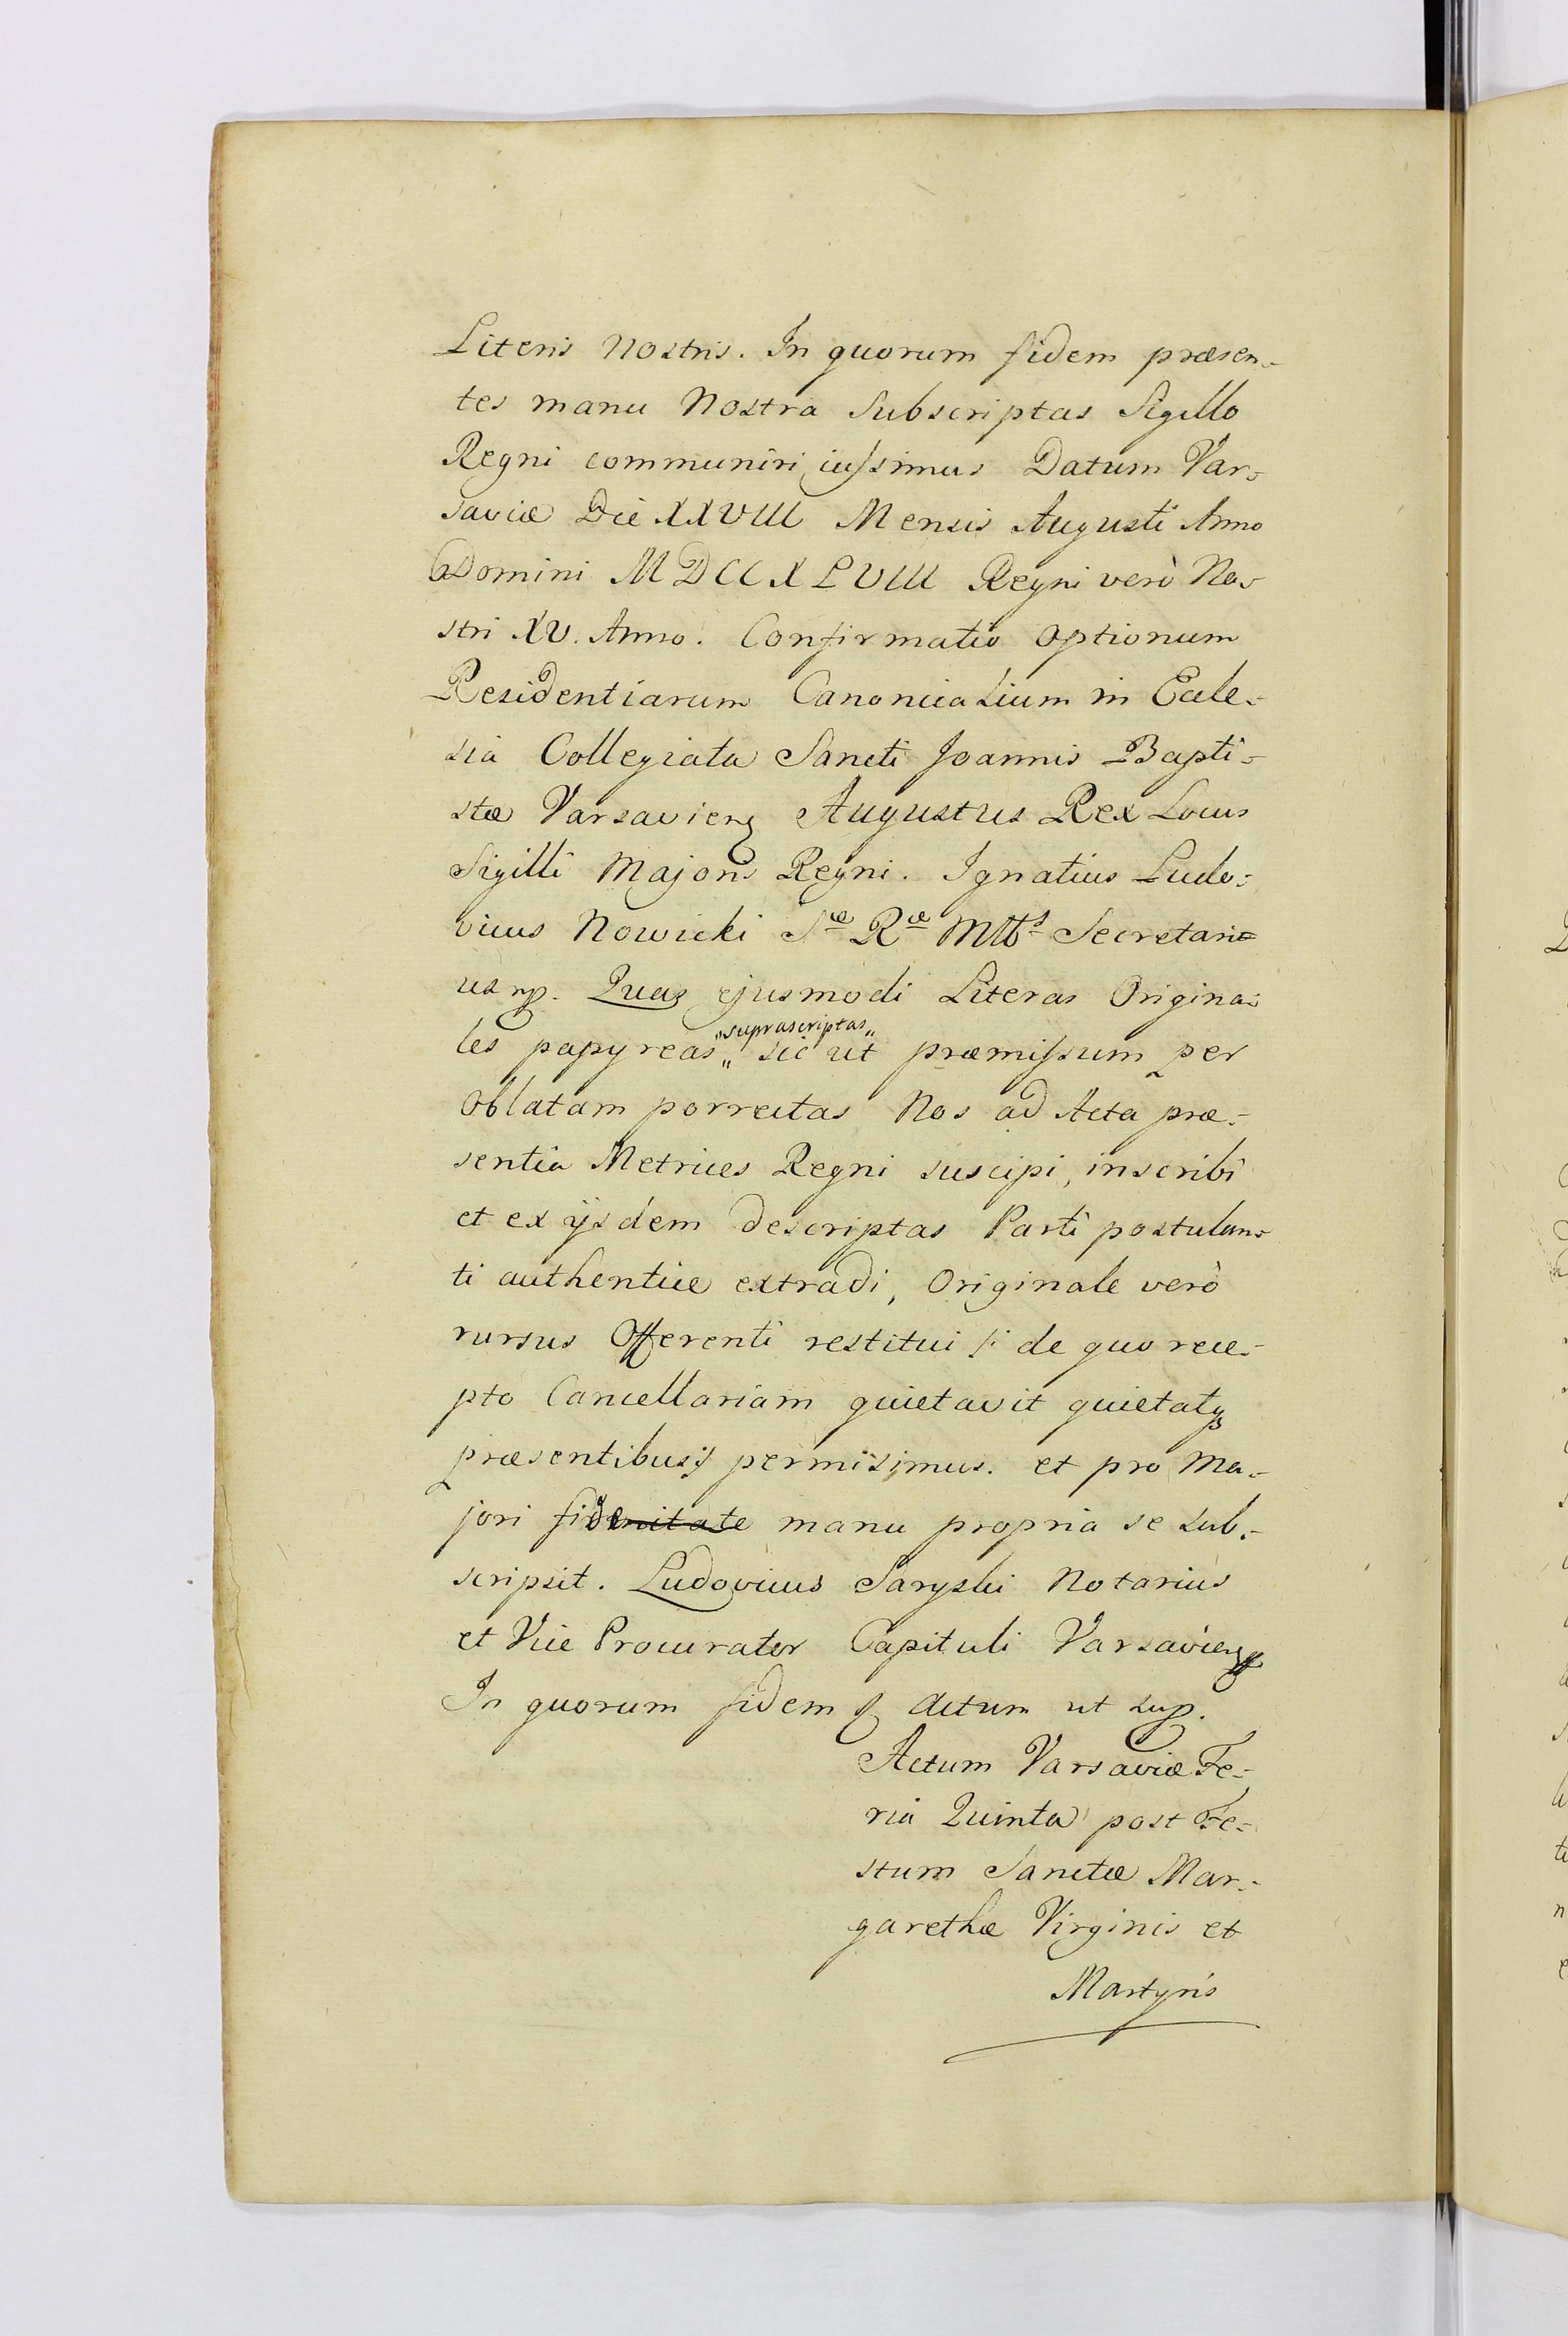 Literis Nostris. In quorum fidem præsen-
tes manu Nostra Subscriptas Sigillo
Regni communiri iussimus Datum Var-
saviæ Die XXVIII Mensis Augusti Anno
Domini MDCCXLVIII Regni verò No-
stri XV. Anno. Confirmatio Optionum
Residentiarum Canonicalium in Eccle-
sia Collegiata Sancti Joannis Bapti-
stæ Varsavien Augustus Rex Locus
Sigilli Majoris Regni. Ignatius Ludo-
vicus Nowicki Sæ Ræ Mttis Secretari-
us mp. Quas ejusmodi Literas Origina-
les papyreas „suprascriptas„ sic ut præmissum per
Oblatam porrectas Nos ad Acta præ-
sentia Metrices Regni suscipi, inscribi
et ex ijsdem descriptas Parti postulan-
ti authentice extradi, Originale verò
rursus Offerenti restitui /: de quo rece-
pto Cancellariam quietavit quietatq
præsentibus :/ permisimus. et pro Ma-
jori fidenitate manu propria se sub-
scripsit. Ludovicus Saryski Notarius
et Vice Procurator Capituli Varsavien
In quorum fidem & Actum ut sup.
Actum Varsaviæ Fe-
ria Quinta post Fe-
stum Sanctæ Mar-
garethæ Virginis et
Martyris